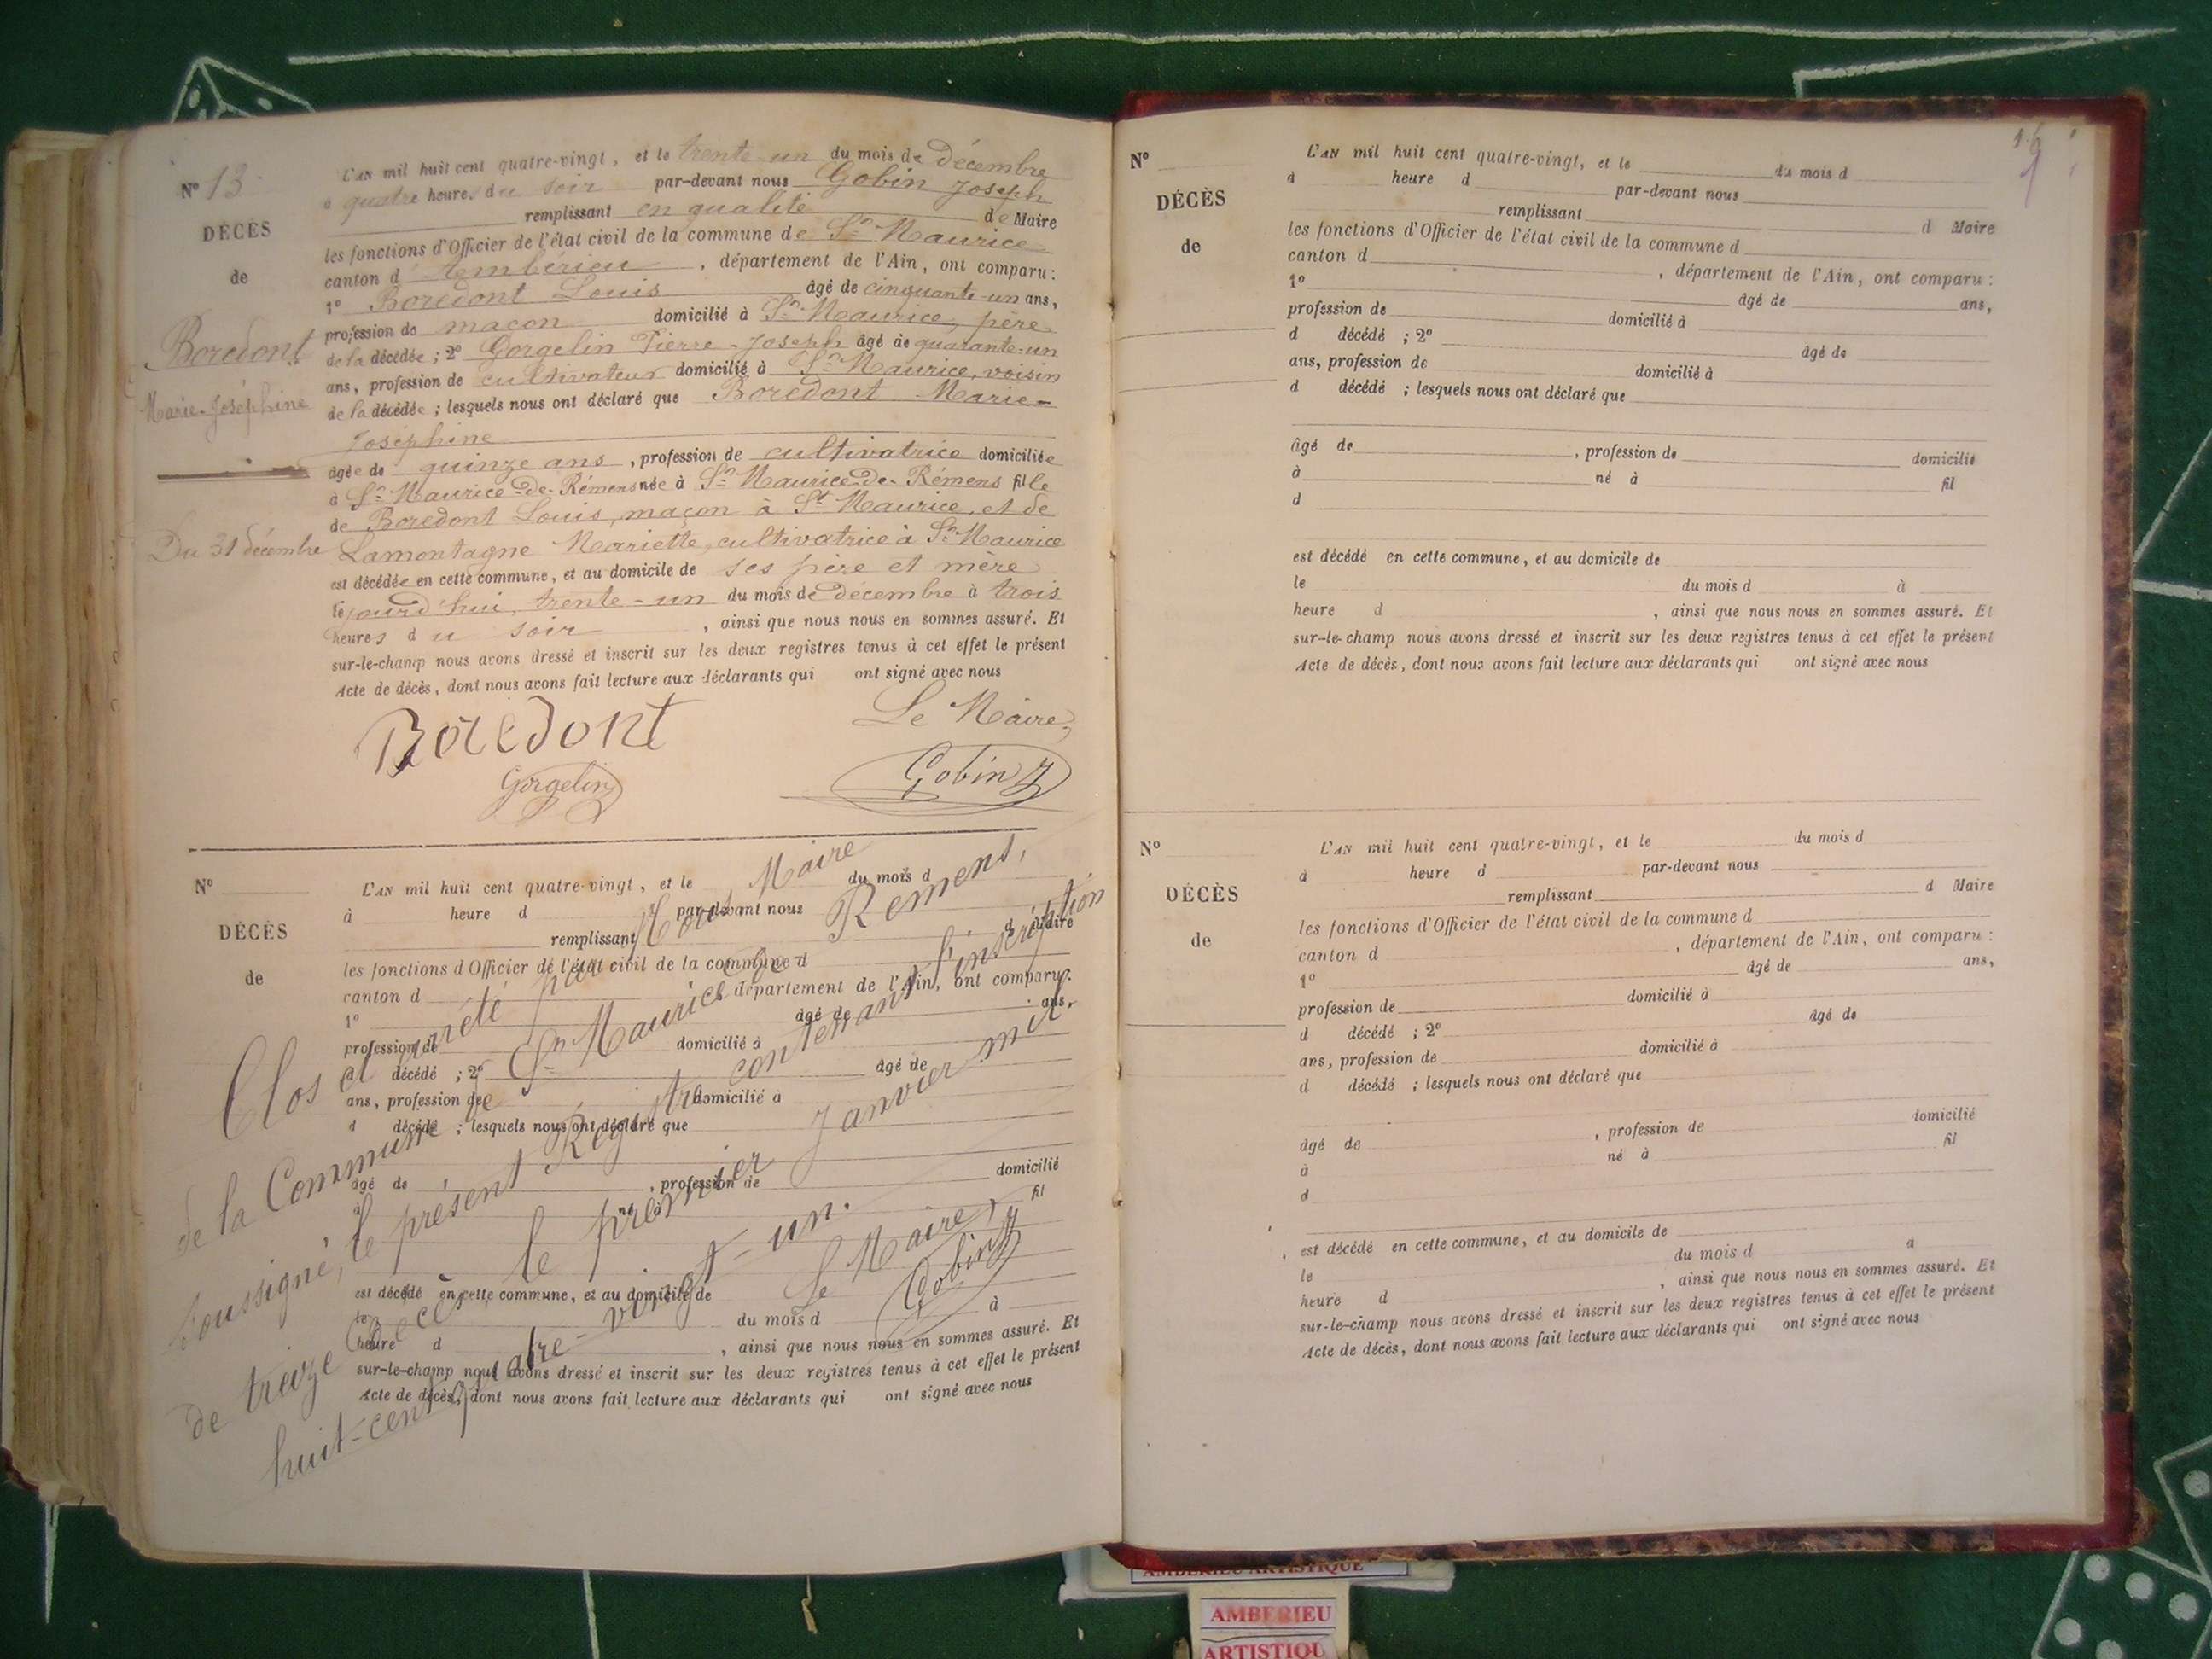 N° 13
DÉCÈS
de
Boredont
Marie-Joséphine
Du 31 décembre
L'AN mil huit cent quatre-vingt, et le trente-un du mois de Décembre
à quatre heures du soir par-devant nous Gobin Joseph
remplissant en qualité de Maire
les fonctions d'Officier de l'état civil de la commune de St Maurice
canton d'Ambérieu, département de l'Ain, ont comparu :
1° Boredont Louis âgé de cinquante-un ans,
profession de maçon domicilié à St Maurice, père
de la décédée ; 2° Gorgelin Pierre-Joseph âgé de quarante-un
ans, profession de cultivateur domicilié à St Maurice, voisin
de la décédée ; lesquels nous ont déclaré que Boredont Marie-
Joséphine
âgée de quinze ans, profession de cultivatrice domiciliée
à St Maurice-de-Rémens née à St Maurice-de-Rémens fille
de Boredont Louis, maçon à St Maurice, et de
Lamontagne Mariette, cultivatrice à St Maurice
est décédée en cette commune, et au domicile de ses père et mère
le jourd'hui, trente-un du mois de décembre à trois
heures du soir, ainsi que nous nous en sommes assuré. Et
sur-le-champ nous avons dressé et inscrit sur les deux registres tenus à cet effet le présent
Acte de décès, dont nous avons fait lecture aux déclarants qui ont signé avec nous
Boredont
Le Maire,
Gorgelin
Gobin J
N°
DÉCÈS
de
L'AN mil huit cent quatre-vingt, et le du mois d
à heure d par-devant nous
remplissant d Maire
les fonctions d'Officier de l'état civil de la commune d
canton d , département de l'Ain, ont comparu :
1° âgé de ans,
profession de domicilié à
d décédé ; 2° âgé de
ans, profession de domicilié à
d décédé ; lesquels nous ont déclaré que
âgé de , profession de domicilié
à né à fil
d
est décédé en cette commune, et au domicile de
le du mois d à
heure d , ainsi que nous nous en sommes assuré. Et
sur-le-champ nous avons dressé et inscrit sur les deux registres tenus à cet effet le présent
Acte de décès, dont nous avons fait lecture aux déclarants qui ont signé avec nous
Clos et arrêté par Nous, Maire
de la Commune de St Maurice de Remens,
soussigné, le présent Registre contenant l'inscription
de treize décès, le premier Janvier mil
huit-cent-quatre-vingt-un.
Le Maire,
Gobin J
16
N°
DÉCÈS
de
L'AN mil huit cent quatre-vingt, et le du mois d
à heure d par-devant nous
remplissant d Maire
les fonctions d'Officier de l'état civil de la commune d
canton d , département de l'Ain, ont comparu :
1° âgé de ans,
profession de domicilié à
d décédé ; 2° âgé de
ans, profession de domicilié à
d décédé ; lesquels nous ont déclaré que
âgé de , profession de domicilié
à né à fil
d
est décédé en cette commune, et au domicile de
le du mois d à
heure d , ainsi que nous nous en sommes assuré. Et
sur-le-champ nous avons dressé et inscrit sur les deux registres tenus à cet effet le présent
Acte de décès, dont nous avons fait lecture aux déclarants qui ont signé avec nous
N°
DÉCÈS
de
L'AN mil huit cent quatre-vingt, et le du mois d
à heure d par-devant nous
remplissant d Maire
les fonctions d'Officier de l'état civil de la commune d
canton d , département de l'Ain, ont comparu :
1° âgé de ans,
profession de domicilié à
d décédé ; 2° âgé de
ans, profession de domicilié à
d décédé ; lesquels nous ont déclaré que
âgé de , profession de domicilié
à né à fil
d
est décédé en cette commune, et au domicile de
le du mois d à
heure d , ainsi que nous nous en sommes assuré. Et
sur-le-champ nous avons dressé et inscrit sur les deux registres tenus à cet effet le présent
Acte de décès, dont nous avons fait lecture aux déclarants qui ont signé avec nous
AMBERIEU ARTISTIQUE
AMBERIEU
ARTISTIQU